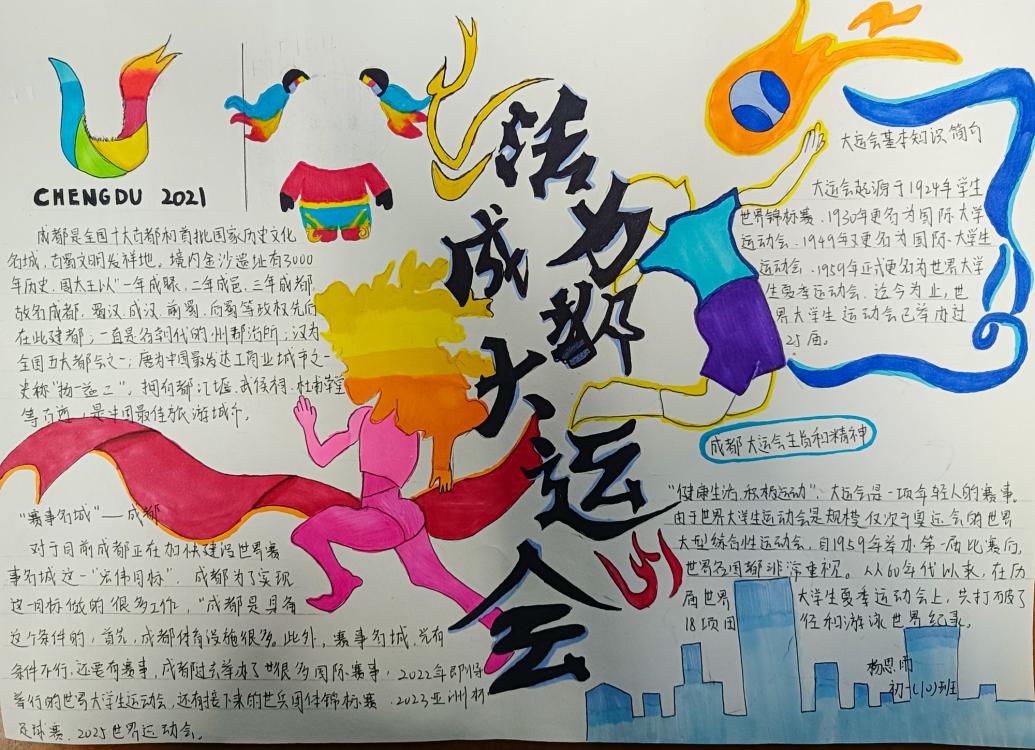 CHENGDU 2021
成都是全国十大古都和首批国家历史文化
名城,古蜀文明发祥地。境内金沙遗址有3000
年历史,周太王以"一年成聚,二年成邑,三年成都,
故名成都,蜀汉、成汉、前蜀、后蜀等政权先后
在此建都,一直是各朝代的州郡治所;汉为
全国五大都会之一;唐为中国最发达工商业城市之一
史称"扬一益二"。拥有都江堰、武侯祠、杜甫草堂
等,是中国最佳旅游城市。
"赛事名城"——成都
对于目前成都正在加快建设世界赛
事名城这一"宏伟目标",成都为了实现
这一目标做的很多工作,"成都是具备
这个条件的,首先,成都体育设施很多。此外,赛事名城,光有
条件不行,还要有赛事,成都过去举办了很多国际赛事,2022年即将
举行的世界大学生运动会,还有接下来的世乒团体锦标赛、2023亚洲杯
足球赛、2025世界运动会。
活力成都大运会
大运会基本知识简介
大运会起源于1924年学生
世界锦标赛、1930年更名为国际大学
运动会、1949年又更名为国际大学生
运动会、1959年正式更名为世界大学
生夏季运动会、迄今为止,世
界大学生运动会已举办过
届。
成都大运会主旨和精神
"健康生活、积极运动"、大运会是一项年轻人的赛事。
由于世界大学生运动会是规模仅次于奥运会的世界
大型综合性运动会,自1959年举办第一届比赛后,
世界各国都非常重视。从60年代以来,在历
届世界大学生夏季运动会上,共打破了
18项田径和游泳世界纪录。
杨思雨
初一(10)班